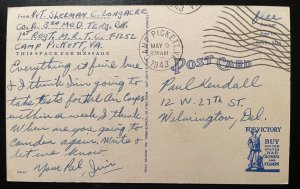 From PVT. SHERMAN C. LONGACRE
Co. B. 3RD MED. TRNG. Bn.
1st Regt. M.R.T.C.
CAMP PICKETT, VA.
THIS SPACE FOR MESSAGE
Everything is fine here
& I think I'm going to
take tests for the Air Corps
within a week, I think.
Where are you going to
Camden again. Write &
let me know
Your Pal Jim
free
CAMP PICKETT, VA.
MAY 9
AM
1943
POST CARD
Paul Kendall
12 W. 27th St.
Wilmington, Del.
FOR VICTORY
BUY
UNITED STATES
WAR
BONDS
AND
STAMPS